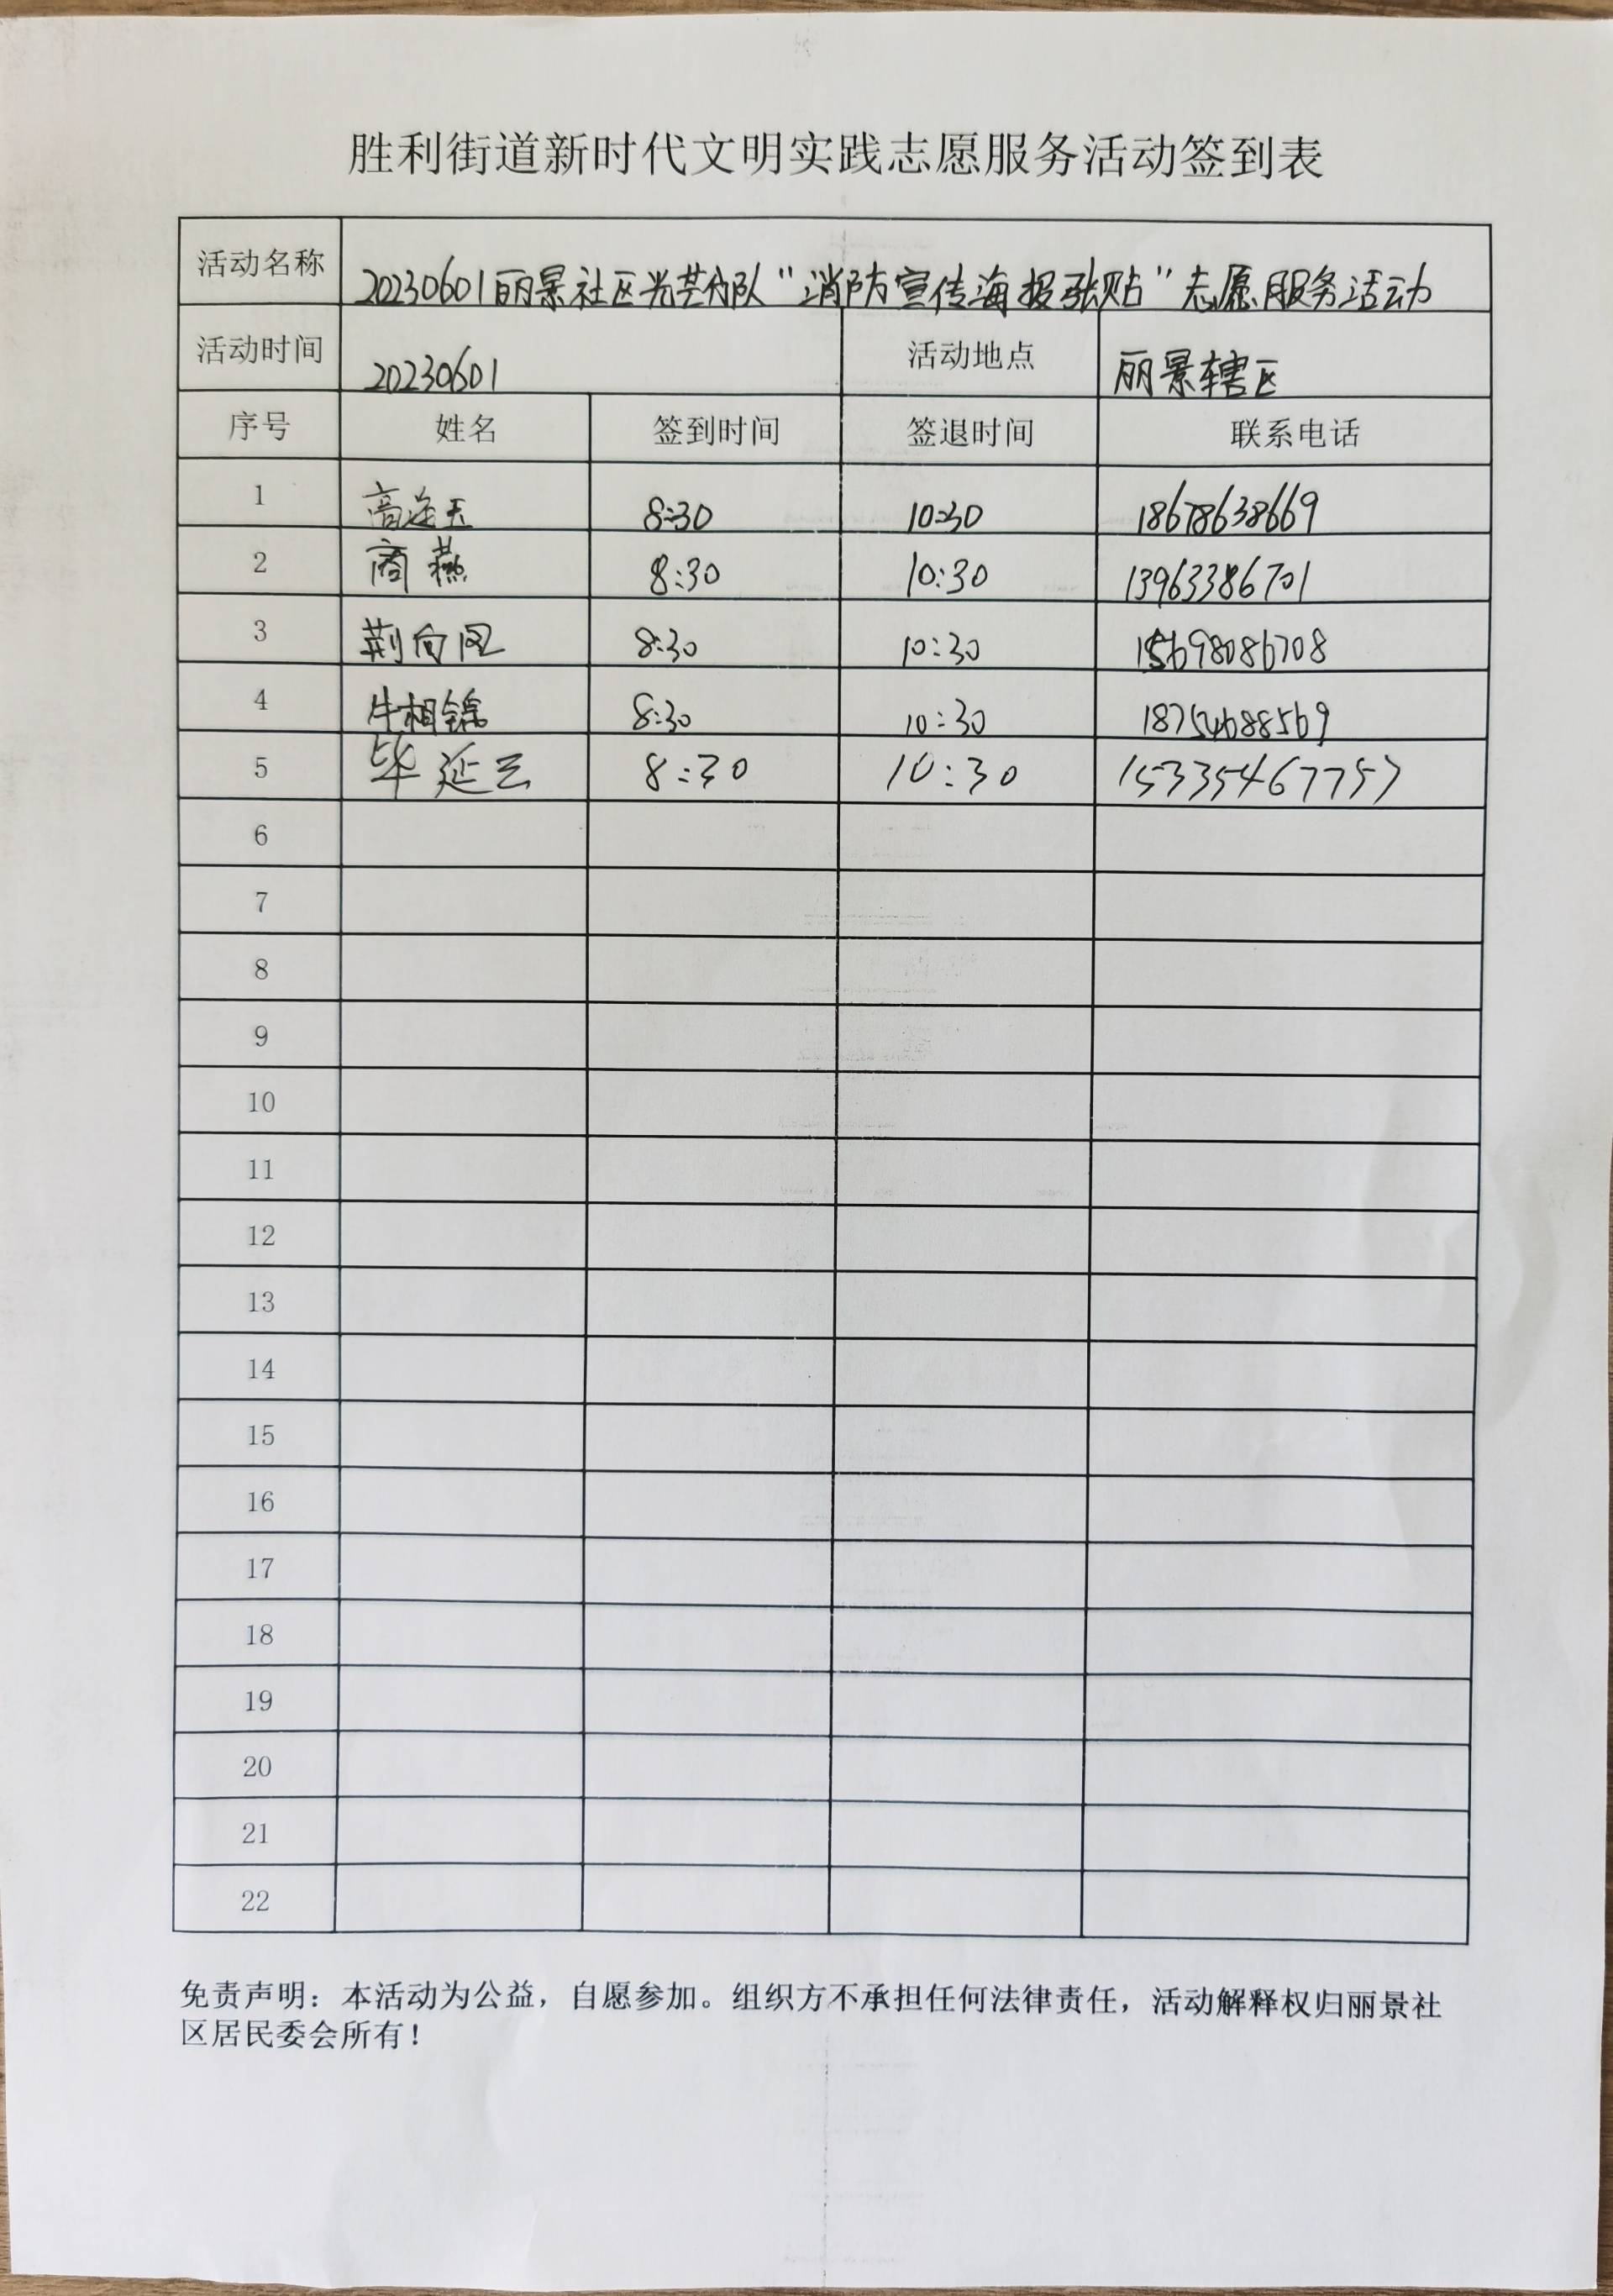 胜利街道新时代文明实践志愿服务活动签到表
活动名称 20230601丽景社区光芒分队“消防宣传海报张贴”志愿服务活动
活动时间 20230601 活动地点 丽景辖区
序号 姓名 签到时间 签退时间 联系电话
1 高连玉 8:30 10:30 18678638669
2 商燕 8:30 10:30 13963386701
3 荆向风 8:30 10:30 15698086708
4 牛相锦 8:30 10:30 18754688569
5 毕延云 8:30 10:30 15335467757
6
7
8
9
10
11
12
13
14
15
16
17
18
19
20
21
22
免责声明：本活动为公益，自愿参加。组织方不承担任何法律责任，活动解释权归丽景社
区居民委会所有！